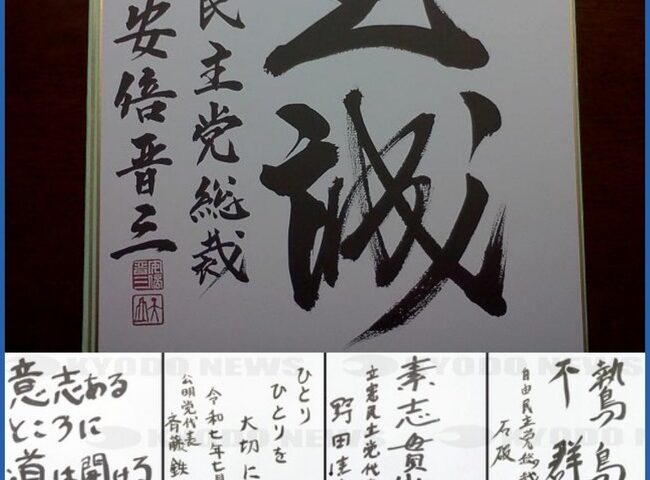 至誠
民主党総裁
安倍晋三
KYODO NEWS
KYODO NEWS
意志ある
ところに
道は開ける
ひとり
ひとりを
大切に
令和七年七月
公明党代表
斉藤鉄
素志貫
立憲民主党代
野田佳
鷙鳥
不群
自由民主党総裁
石破